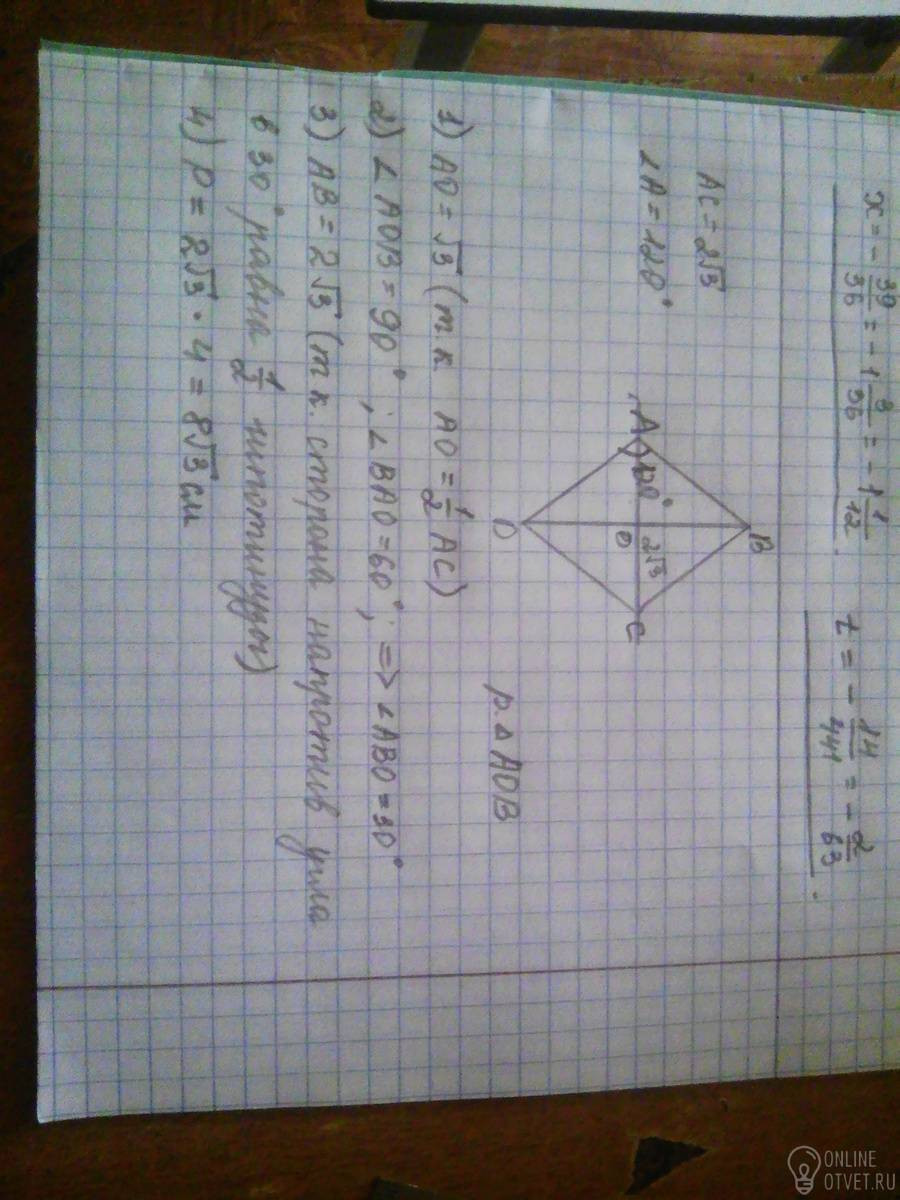 x = - 39/36 = - 1 3/36 = - 1 1/12.
z = - 14/441 = - 2/63.
AC = 2√3
∠A = 120°
B
A
120°
2√3
O
C
D
р. △ AOB
1) AO = √3 (т.к AO = 1/2 AC)
2) ∠AOB = 90°; ∠BAO = 60°; => ∠ABO = 30°
3) AB = 2√3 (т к. сторона напротив угла
в 30° равна 1/2 гипотинузы)
4) P = 2√3 · 4 = 8√3 см
ONLINE
OTVET.RU